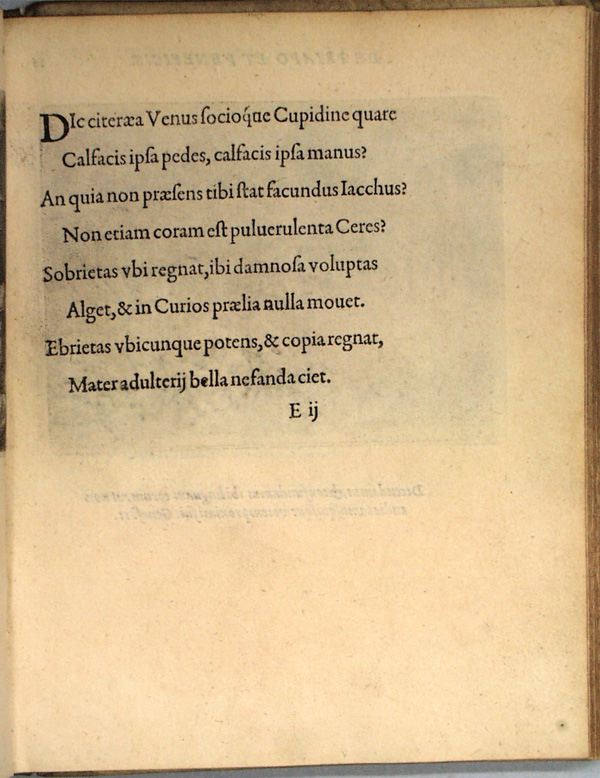 DIc citeræa Venus ſocioq́ue Cupidine quare
Calfacis ipſa pedes, calfacis ipſa manus?
An quia non præſens tibi ſtat facundus Iacchus?
Non etiam coram eſt puluerulenta Ceres?
Sobrietas vbi regnat, ibi damnoſa voluptas
Alget, & in Curios prælia nulla mouet.
Ebrietas vbicunque potens, & copia regnat,
Mater adulterij bella nefanda ciet.
E ij